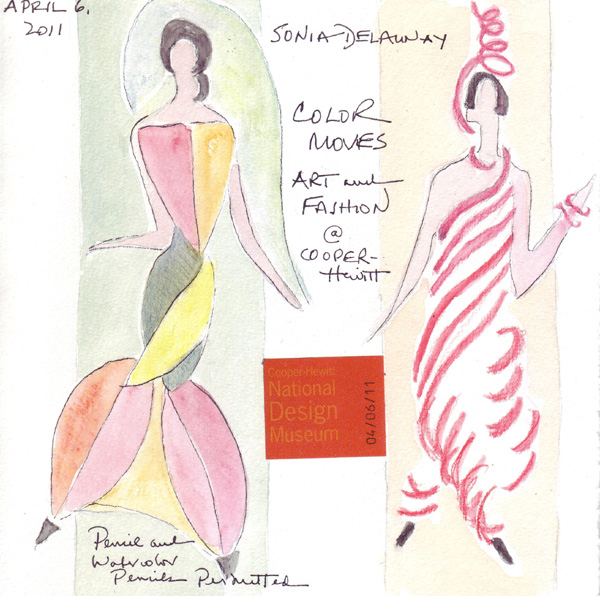 APRIL 6,
2011
SONIA DELAUNAY
COLOR
MOVES
ART and
FASHION
@
COOPER-
Hewitt
Cooper-Hewitt
National
Design
Museum
04/06/11
Pencil and
Watercolor
Pencils Permitted